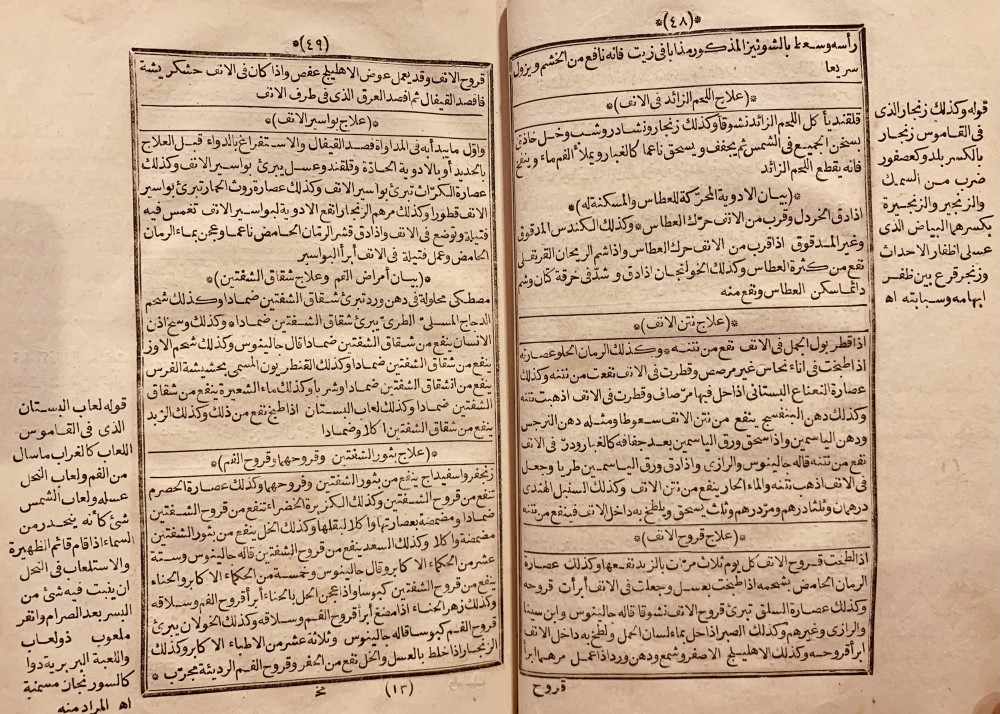 *(٤٨)*
رأسه وسعط بالشونيز المذكور مذابا فى زيت فانه نافع من الخشم ويزول
سريعا
*(علاج اللحم الزائد فى الانف)*
قلقند يأكل اللحم الزائد نشوقا وكذلك زنجار ونشادر وشب وخل حاذق
يسخن الجميع فى الشمس ثم يجفف ويسحق ناعما كالغبار ويملأ الفم ماء وينفخ
فانه يقطع اللحم الزائد
*(بيان الادوية المحركة للعطاس والمسكنة له)*
اذا دق الخردل وقرب من الانف حرك العطاس * وكذلك الكندس المدقوق
وغير المدقوق اذا قرب من الانف حرك العطاس واذا شم الريحان القرنفلى
نفع من كثرة العطاس وكذلك الخولنجان اذا دق وشد فى خرقة كتان وشم
دائما سكن العطاس ونفع منه
*(علاج نتن الانف)*
اذا قطر بول الجمل فى الانف نفع من نتنه * وكذلك الرمان الحلو عصارته
اذا طبخت فى اناء نحاس غير مرصص وقطرت فى الانف نفعت من نتنه وكذلك
عصارة النعناع البستانى اذا حل فيها مر صاف وقطرت فى الانف اذهبت نتنه
وكذلك دهن البنفسج ينفع من نتن الانف سعوطا ومثله دهن النرجس
ودهن الياسمين واذا سحق ورق الياسمين بعد جفافه كالغبار وذر فى الانف
نفع من نتنه قاله جالينوس والرازى واذا دق ورق الياسمين طريا وجعل
فى الانف اذهب نتنه والماء الحار ينفع من نتن الانف وكذلك السنبل الهندى
درهمان وثلثا درهم ومر درهم وثلث يسحق ويلطخ به داخل الانف فينفع من نتنه
*(علاج قروح الانف)*
اذا لطخت قروح الانف كل يوم ثلاث مرات بالزبد نفعها وكذلك عصارة
الرمان الحامض بشحمه اذا طبخت بعسل وجعلت فى الانف أبرأت قروحه
وكذلك عصارة السلق تبرئ قروح الانف نشوقا قاله جالينوس وابن سينا
والرازى وغيرهم وكذلك الصبر اذا حل بماء لسان الحمل ولطخ به داخل الانف
ابرأ قروحه وكذلك الاهليلج الاصفر وشمع ودهن ورد اذا عمل مرهما ابرأ
قروح
قوله وكذلك زنجار الذى
فى القاموس زنجار
بالكسر بلد وكعصفور
ضرب من السمك
والزنجير والزنجيرة
بكسرهما البياض الذى
على اظفار الاحداث
وزنجر قرع بين ظفر
ابهامه وسبابته اه
*(٤٩)*
قروح الانف وقد يعمل عوض الاهليلج عفص واذا كان فى الانف خشكريشة
فافصد القيفال ثم افصد العرق الذى فى طرف الانف
*(علاج بواسير الانف)*
واول ما يبدأ به فى المداواة فصد القيفال والاستفراغ بالدواء قبل العلاج
بالحديد أو بالادوية الحادة وقلقند وعسل يبرئ بواسير الانف وكذلك
عصارة الكراث تبرئ بواسير الانف وكذلك عصارة روث الحمار تبرئ بواسير
الانف قطورا وكذلك مرهم الزنجار انفع الادوية لبواسير الانف تغمس فيه
فتيلة وتوضع فى الانف واذا دق قشر الرمان الحامض ناعما وعجن بماء الرمان
الحامض وعمل فتيلة فى الانف أبرأ البواسير
*(بيان أمراض الفم وعلاج شقاق الشفتين)*
مصطكى محلولة فى دهن ورد تبرئ شقاق الشفتين ضمادا وكذلك شحم
الدجاج المسلى الطرى يبرئ شقاق الشفتين ضمادا * وكذلك وسخ اذن
الانسان ينفع من شقاق الشفتين ضمادا قال جالينوس وكذلك شحم الاوز
ينفع من شقاق الشفتين ضمادا وكذلك القنطريون المسمى بحشيشة الفرس
ينفع من انشقاق الشفتين ضمادا وشربا وكذلك ماء الشعيرة ينفع من شقاق
الشفتين ضمادا وكذلك لعاب البستان اذا طبخ نفع من ذلك وكذلك الزبد
ينفع من شقاق الشفتين اكلا وضمادا
*(علاج بثور الشفتين وقروحهما وقروح الفم)*
زنجفر واسفيداج ينفع من بثور الشفتين وقروحهما وكذلك عصارة الحصرم
تنفع من قروح الشفتين وكذلك الكزبرة الخضراء تنفع من قروح الشفتين
ضمادا ومضمضة بعصارتها واكلا لبقلها وكذلك الخل ينفع من بثور الشفتين
مضمضة واكلا وكذلك السعد ينفع من قروح الشفتين قاله جالينوس وستة
عشر من الحكماء الاكابر وقال جالينوس وخمسة من الحكماء الاكابر والحناء
ينفع من قروح الشفتين كبوسا واذا عجن الخل بالحناء أبرأ قروح الفم وسلاقه
وكذلك زهر الحناء اذا مضغ أبرأ قروح الفم وسلاقه وكذلك الخولان يبرئ
قروح الفم كبوسا قاله جالينوس وثلاثة عشر من الاطباء الاكابر وكذلك
الزنجار اذا خلط بالعسل والخل نفع من الحفر وقروح الفم الرديئة مجرب *
(١٣)
نخ
قوله لعاب البستان
الذى فى القاموس
اللعاب كالغراب ما سال
من الفم ولعاب النحل
عسله ولعاب الشمس
شئ كأنه ينحدر من
السماء اذا قام قائم الظهيرة
والاستلعاب فى النخل
ان ينبت فيه شئ من
البسر بعد الصرام وثغر
ملعوب ذو لعاب
واللعبة البربرية دوا
كالسورنجان مسمنية
اه المراد منه